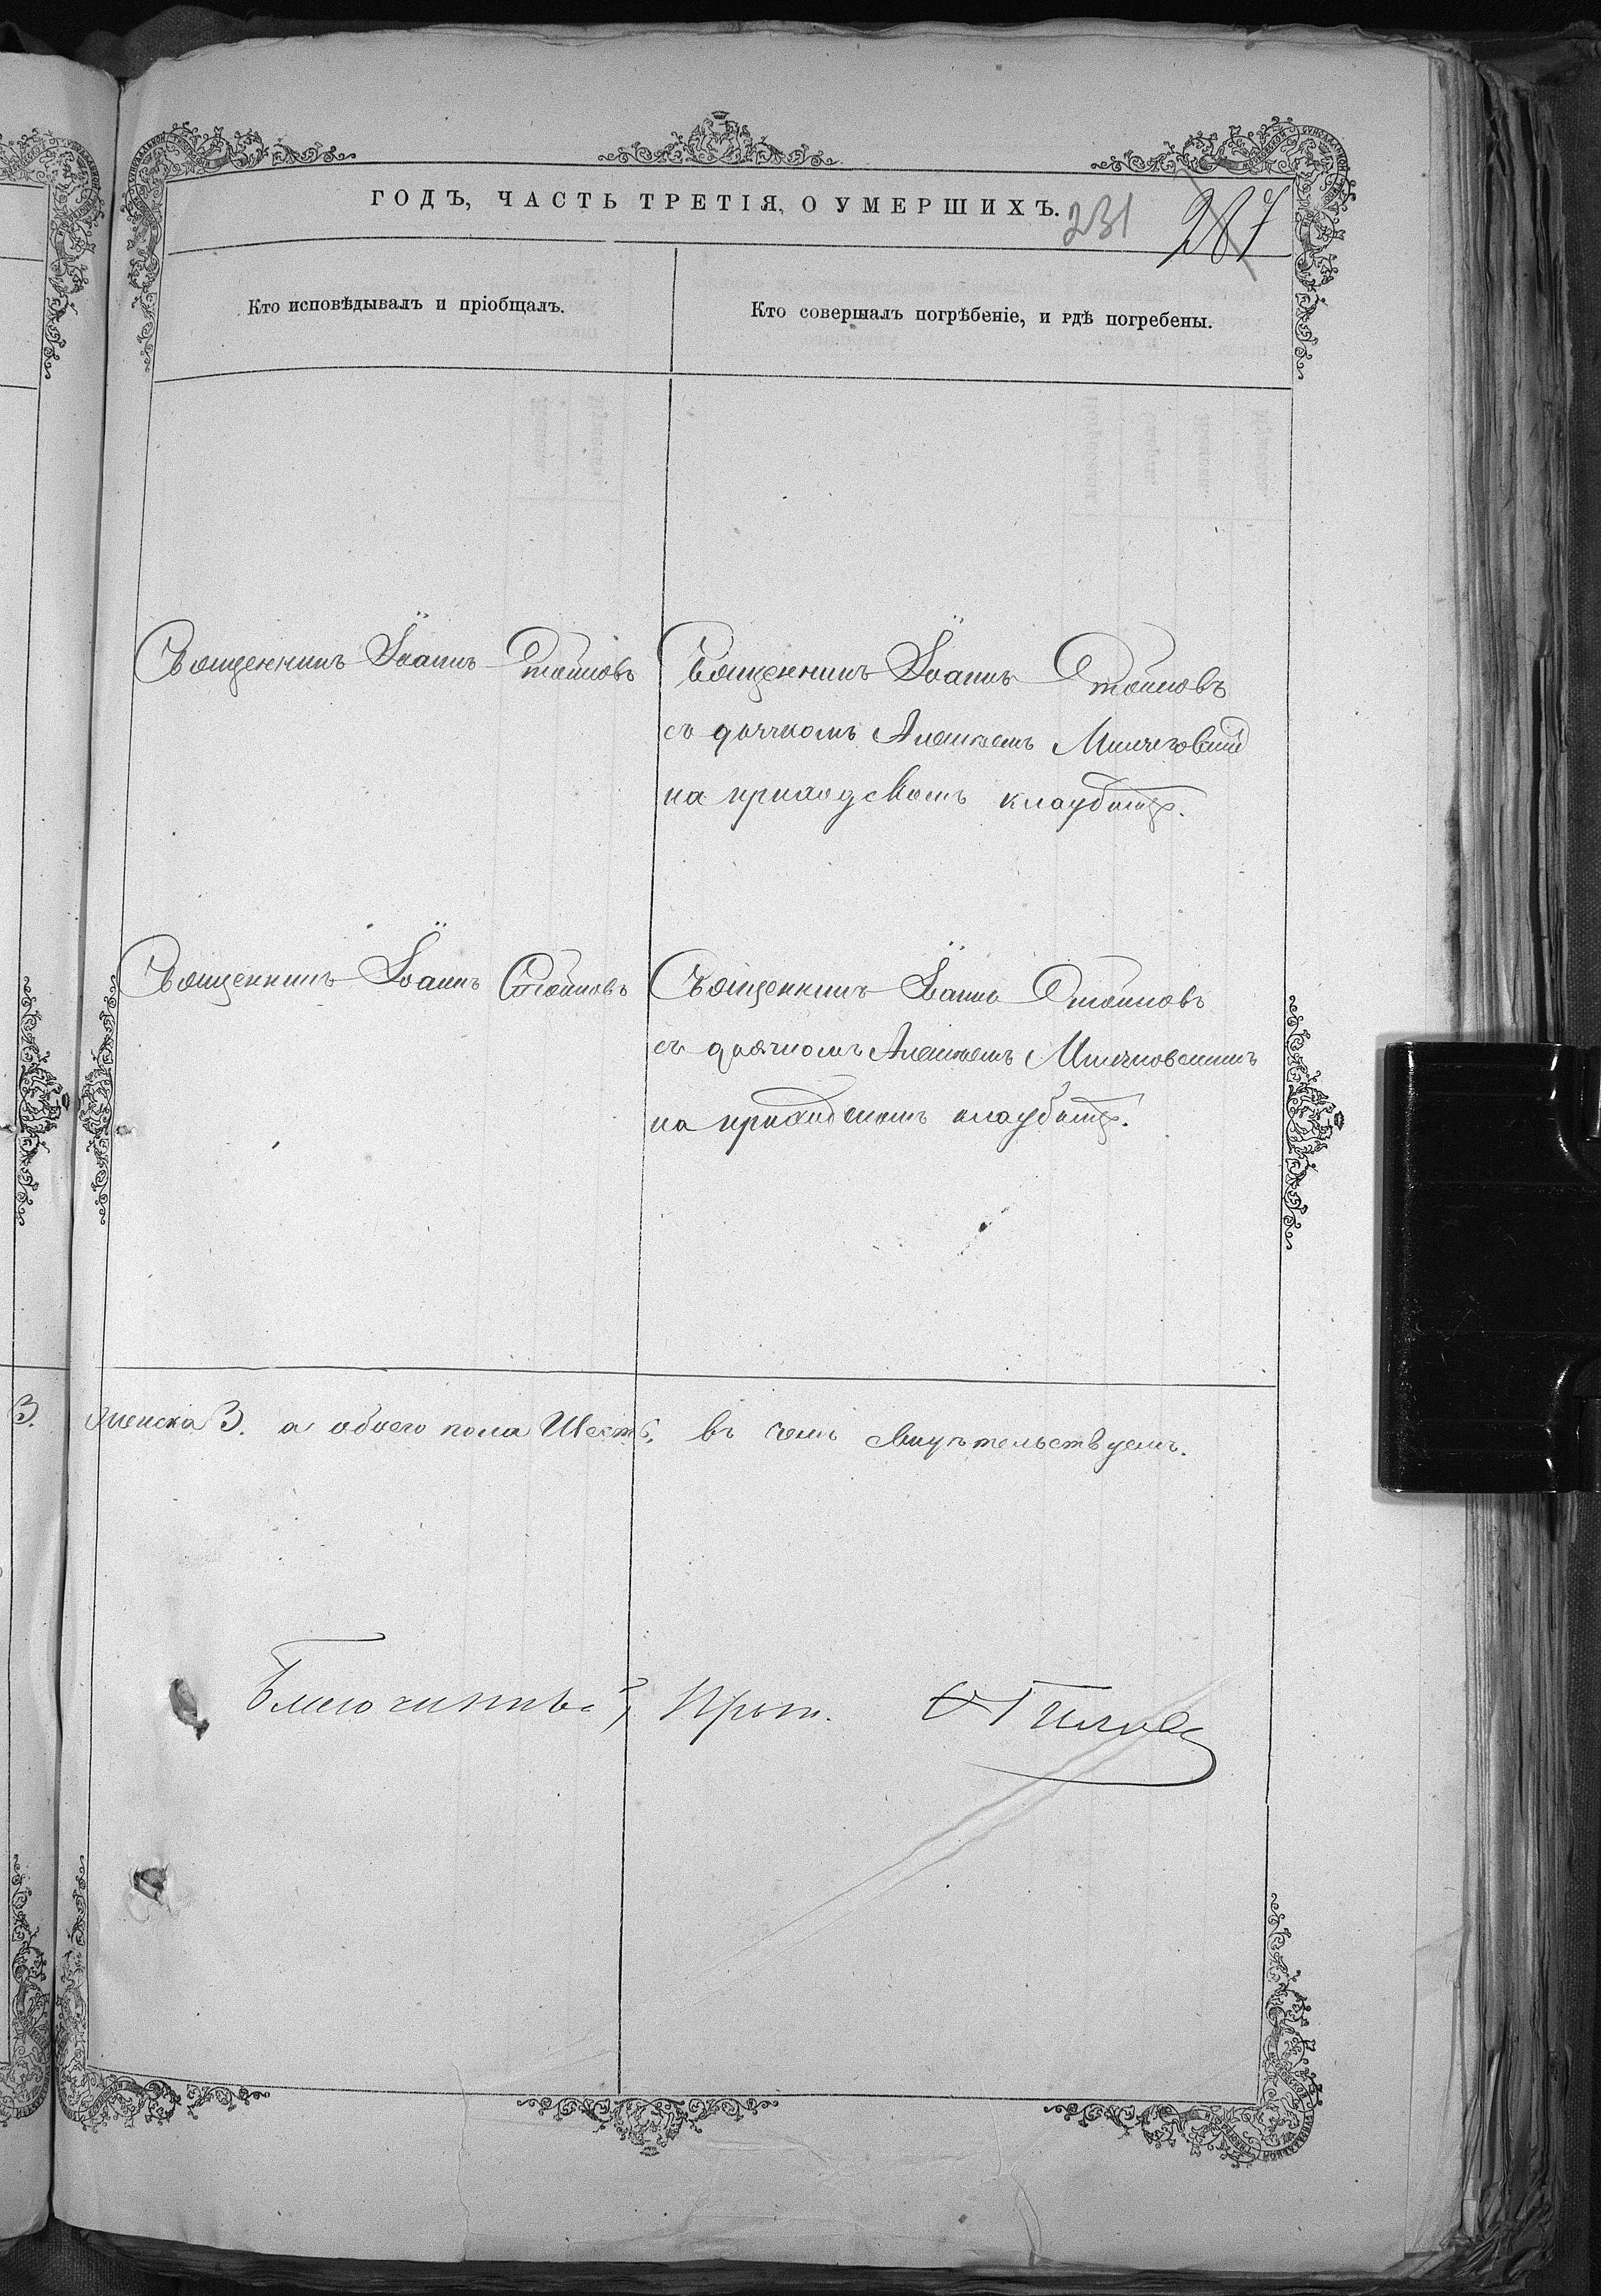 ГОДЪ, ЧАСТЬ ТРЕТІЯ, О УМЕРШИХЪ.
231 287
Кто исповѣдывалъ и пріобщалъ.
Кто совершалъ погрѣбеніе, и гдѣ погребены.
Священникъ Іоаннъ Стоиковъ
Священникъ Іоаннъ Стоиковъ
съ дьячкомъ Алексѣемъ
на приходскомъ кладбищѣ.
Священникъ Іоаннъ Стоиковъ
Священникъ Іоаннъ Стоиковъ
съ дьячкомъ Алексѣемъ
на приходскомъ кладбищѣ.
3.
женска 3. а обоего пола Шесть, въ чемъ свидѣтельствуемъ.
Благочинный, Прот.